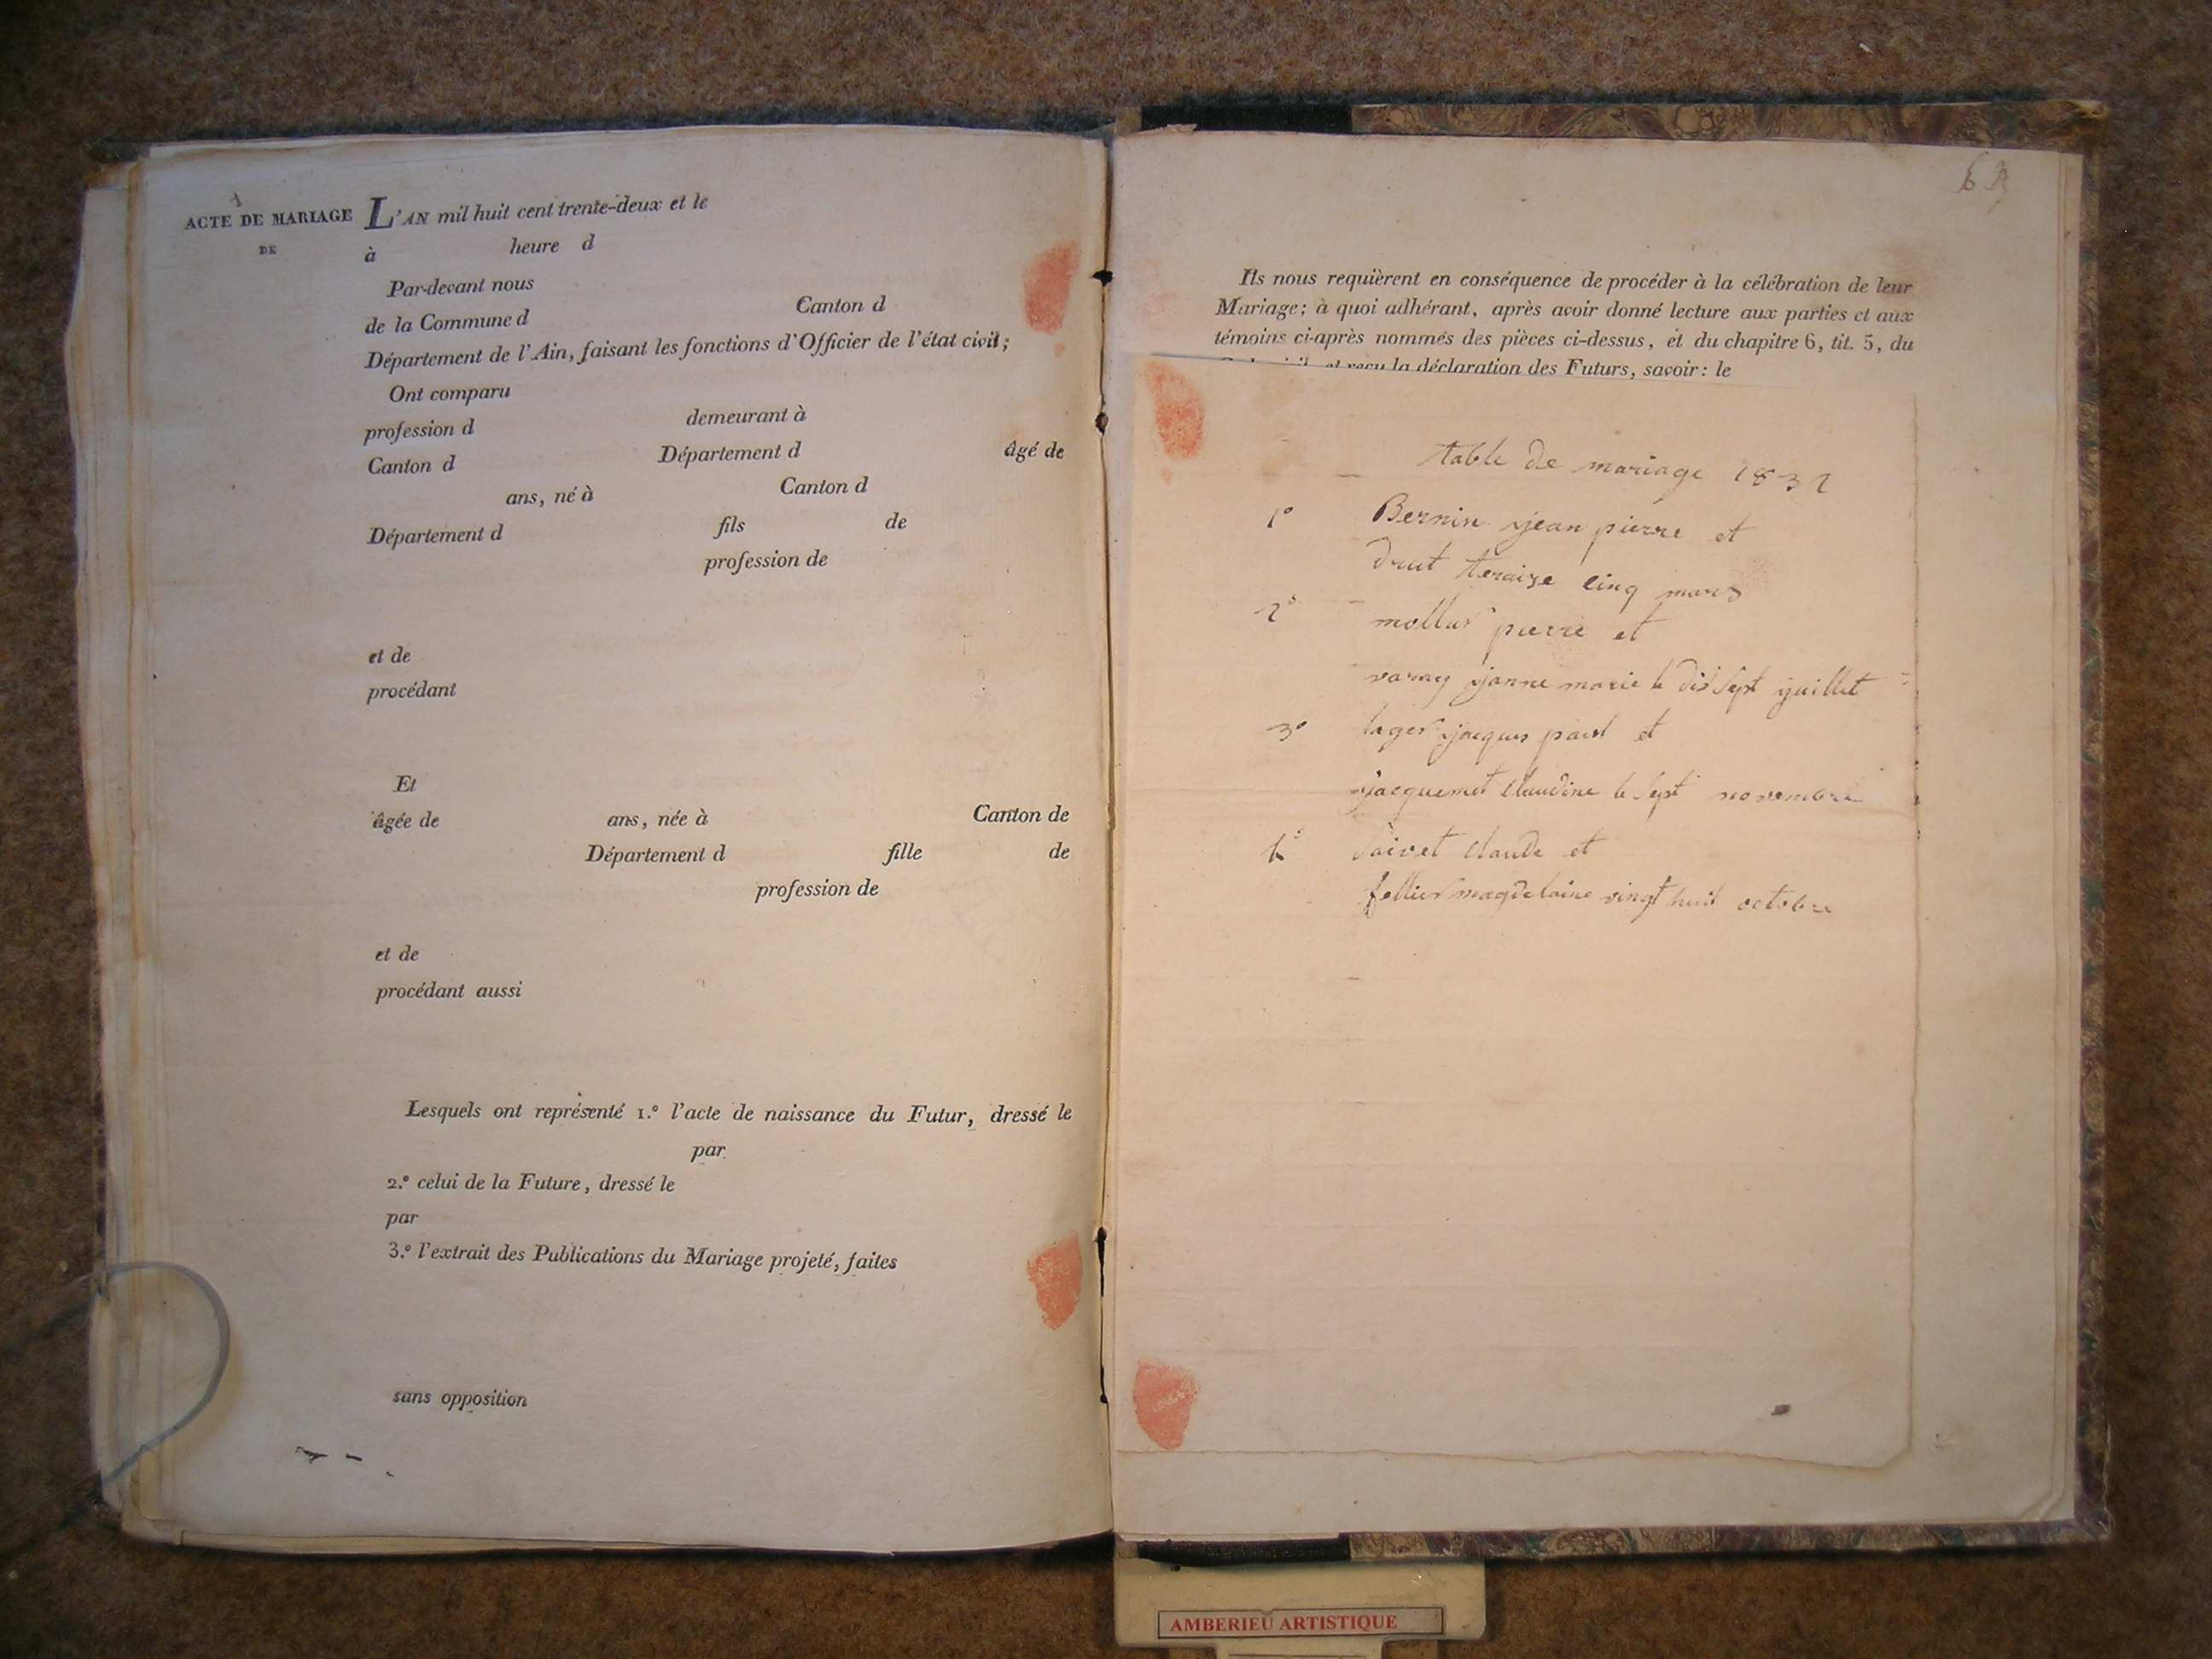 ACTE DE MARIAGE
DE
L'AN mil huit cent trente-deux et le
à heure d
Par-devant nous
de la Commune d Canton d
Département de l'Ain, faisant les fonctions d'Officier de l'état civil;
Ont comparu
profession d demeurant à
Canton d Département d âgé de
ans, né à Canton d
Département d fils de
profession de
et de
procédant
Et
âgée de ans, née à Canton de
Département d fille de
profession de
et de
procédant aussi
Lesquels ont représenté 1.º l'acte de naissance du Futur, dressé le
par
2.º celui de la Future, dressé le
par
3.º l'extrait des Publications du Mariage projeté, faites
sans opposition
Ils nous requièrent en conséquence de procéder à la célébration de leur
Mariage; à quoi adhérant, après avoir donné lecture aux parties et aux
témoins ci-après nommés des pièces ci-dessus, et du chapitre 6, tit. 5, du
et reçu la déclaration des Futurs, savoir: le
table de mariage 1832
1º Bernin jean pierre et
drut teraise cinq mars
2º pierre et
janne marie le dis sept juillet
3º lager jacques paul et
jacquemet claudine le sept novembre
claude et
magdelaine vingt huit octobre
AMBERIEU ARTISTIQUE